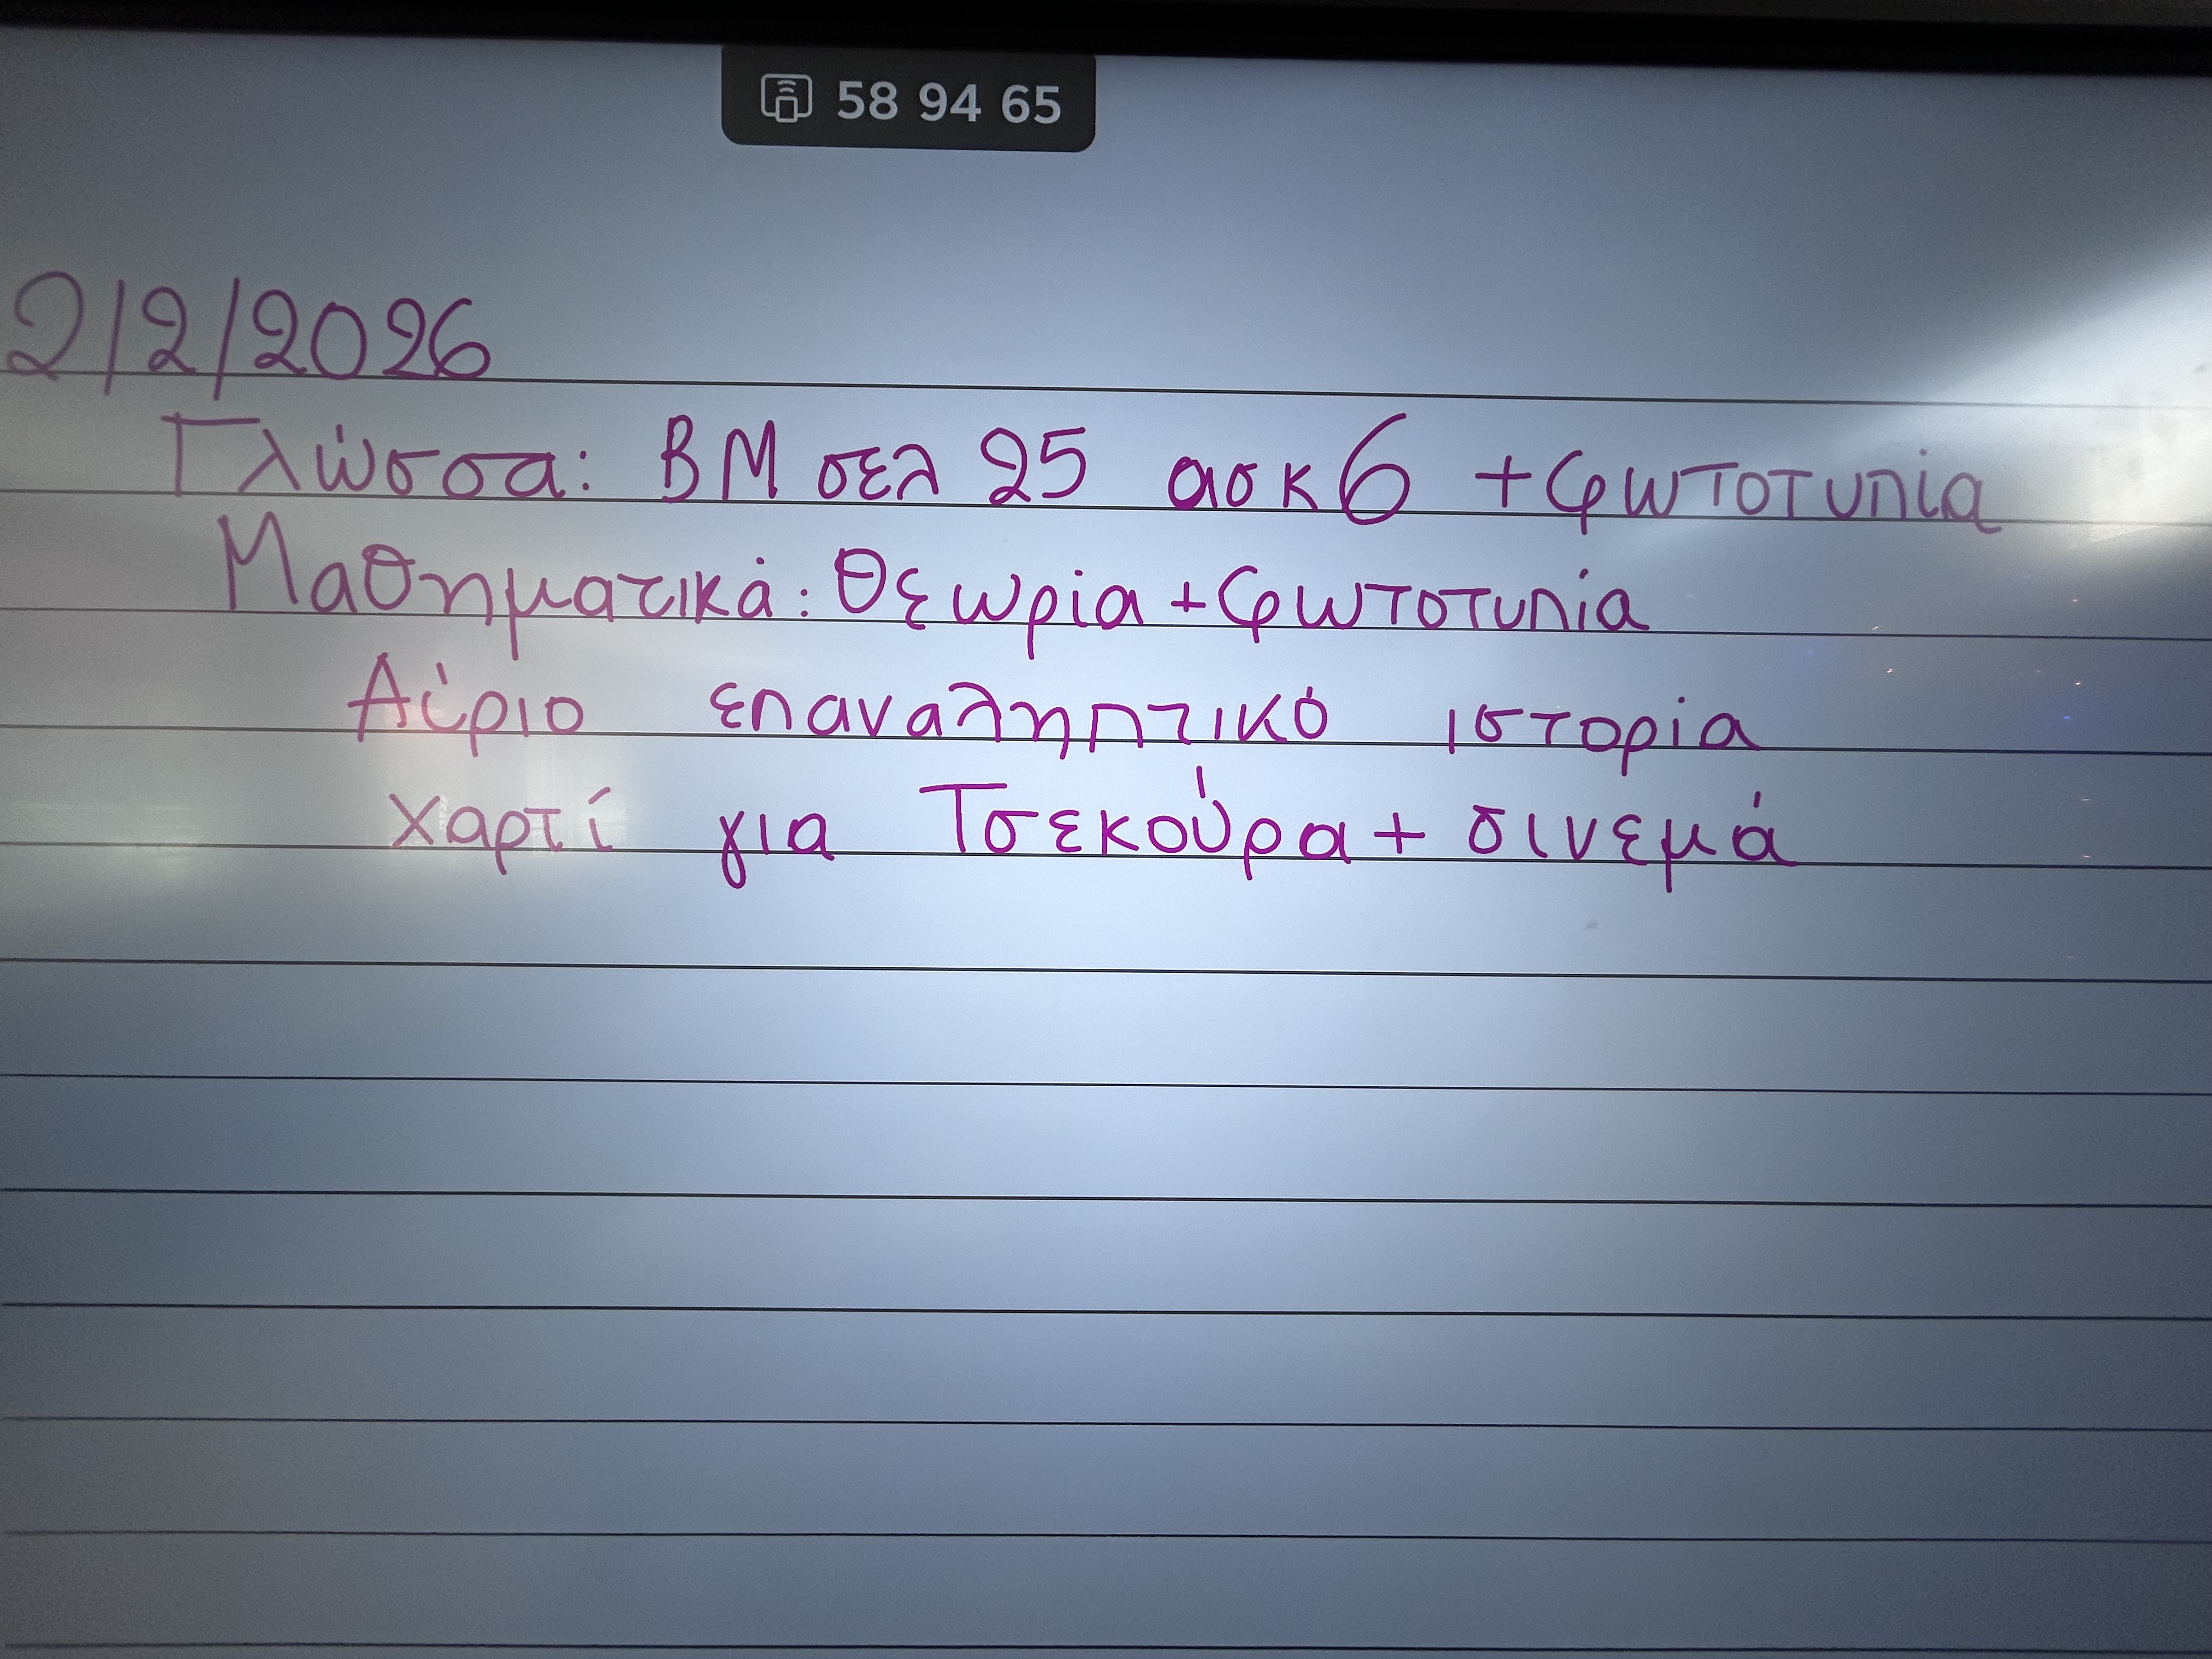 58 94 65
2/2/2026
Γλώσσα: ΒΜ σελ 25 ασκ 6 + φωτοτυπία
Μαθηματικά: Θεωρία + φωτοτυπία
Αύριο επαναληπτικό ιστορία
χαρτί για Τσεκούρα + σινεμά